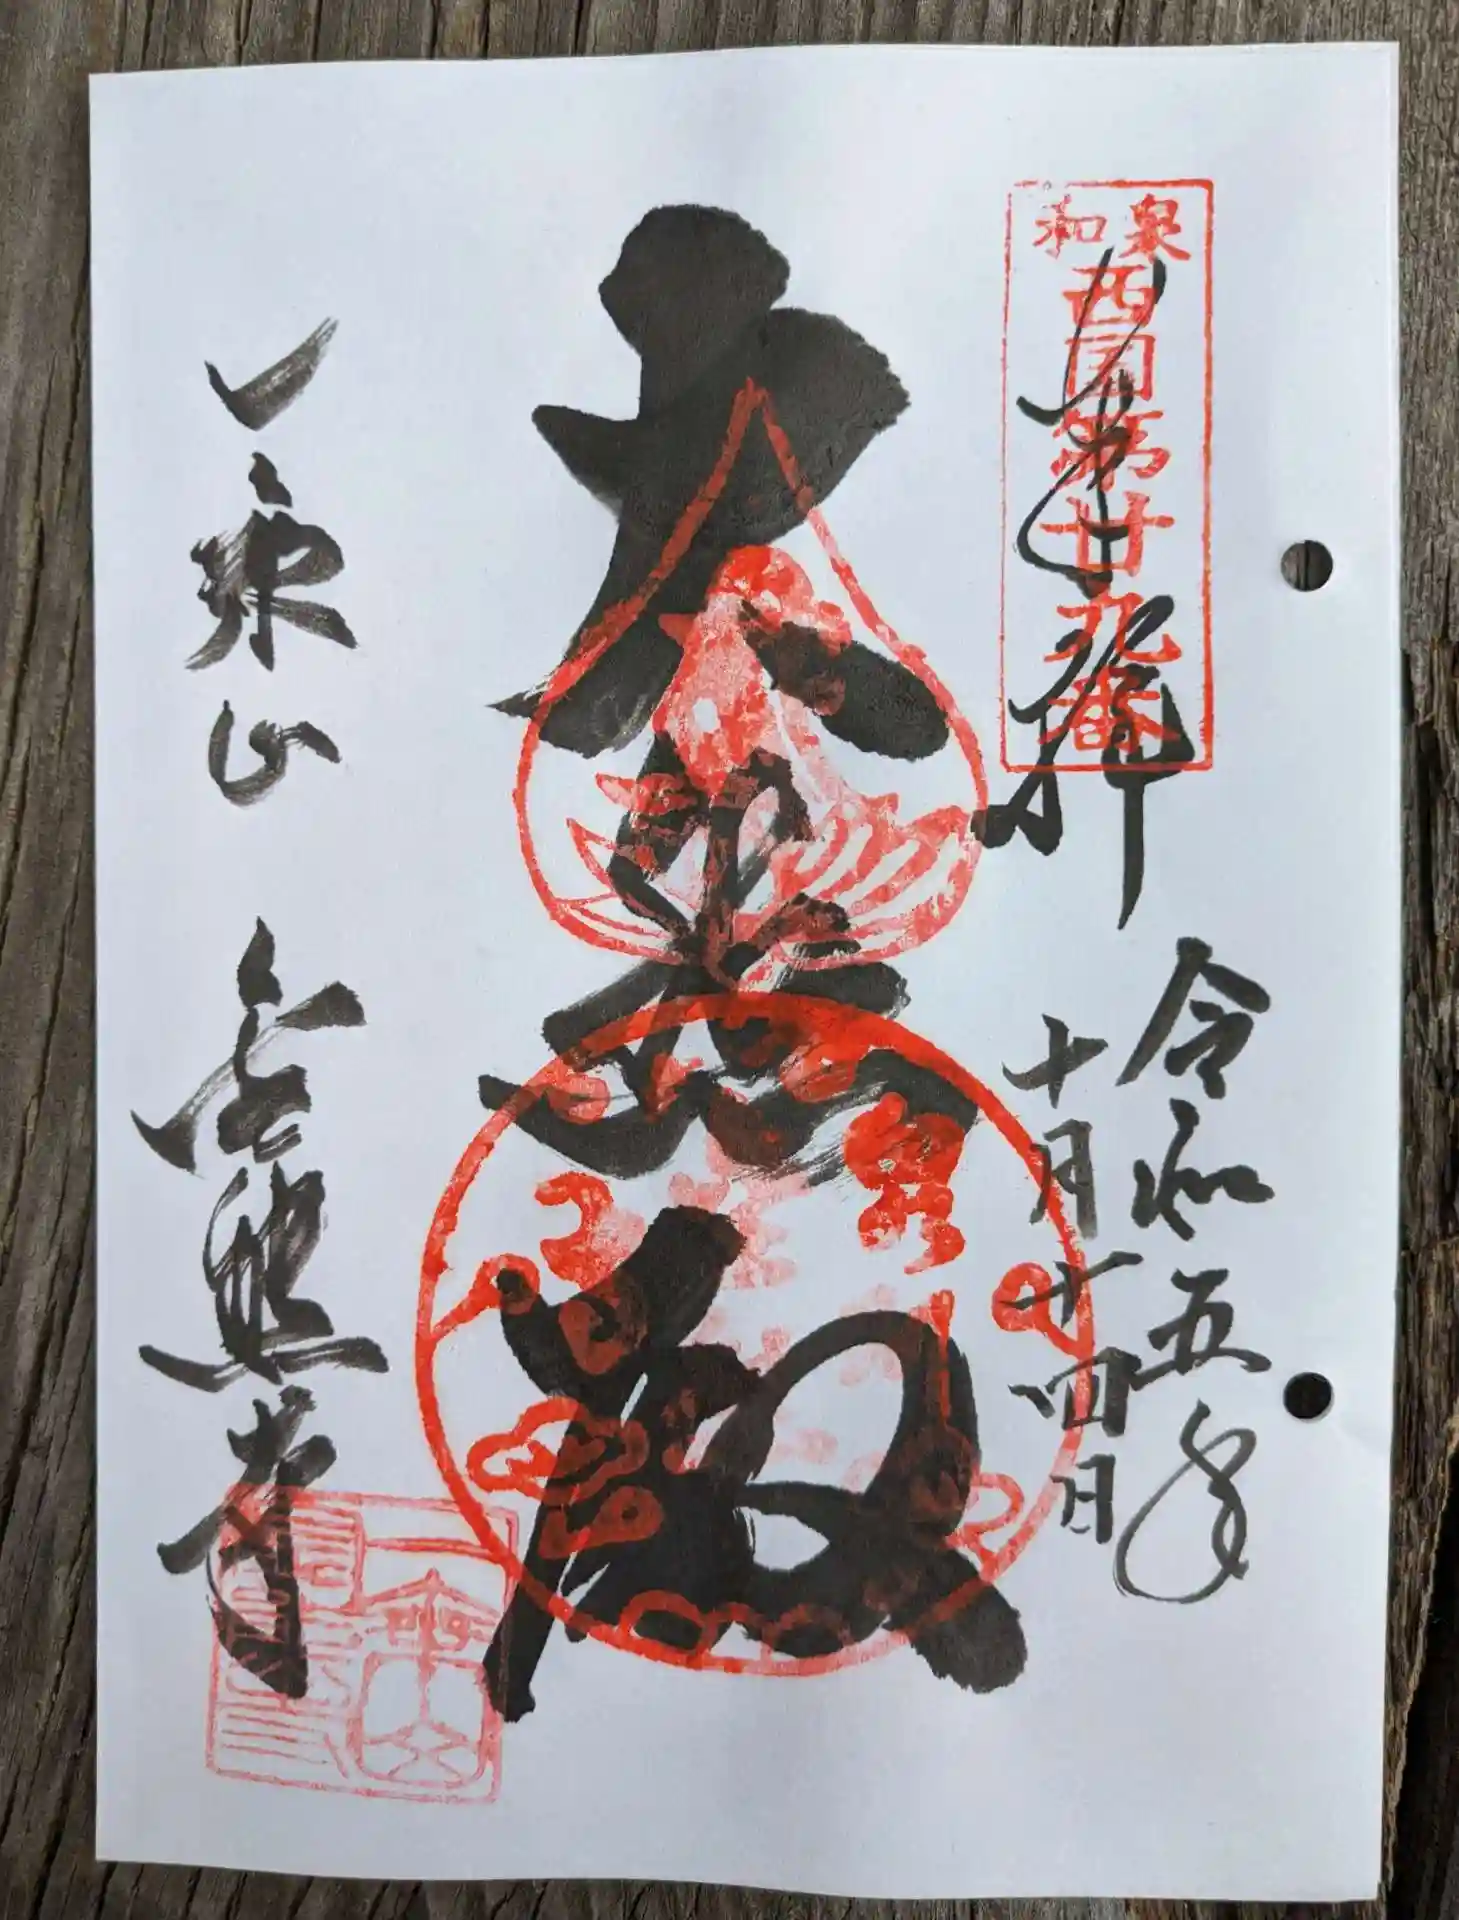 和泉
西国第廿九番
奉拝
令和五年
十月廿四日
大悲殿
一乗山
金熊寺